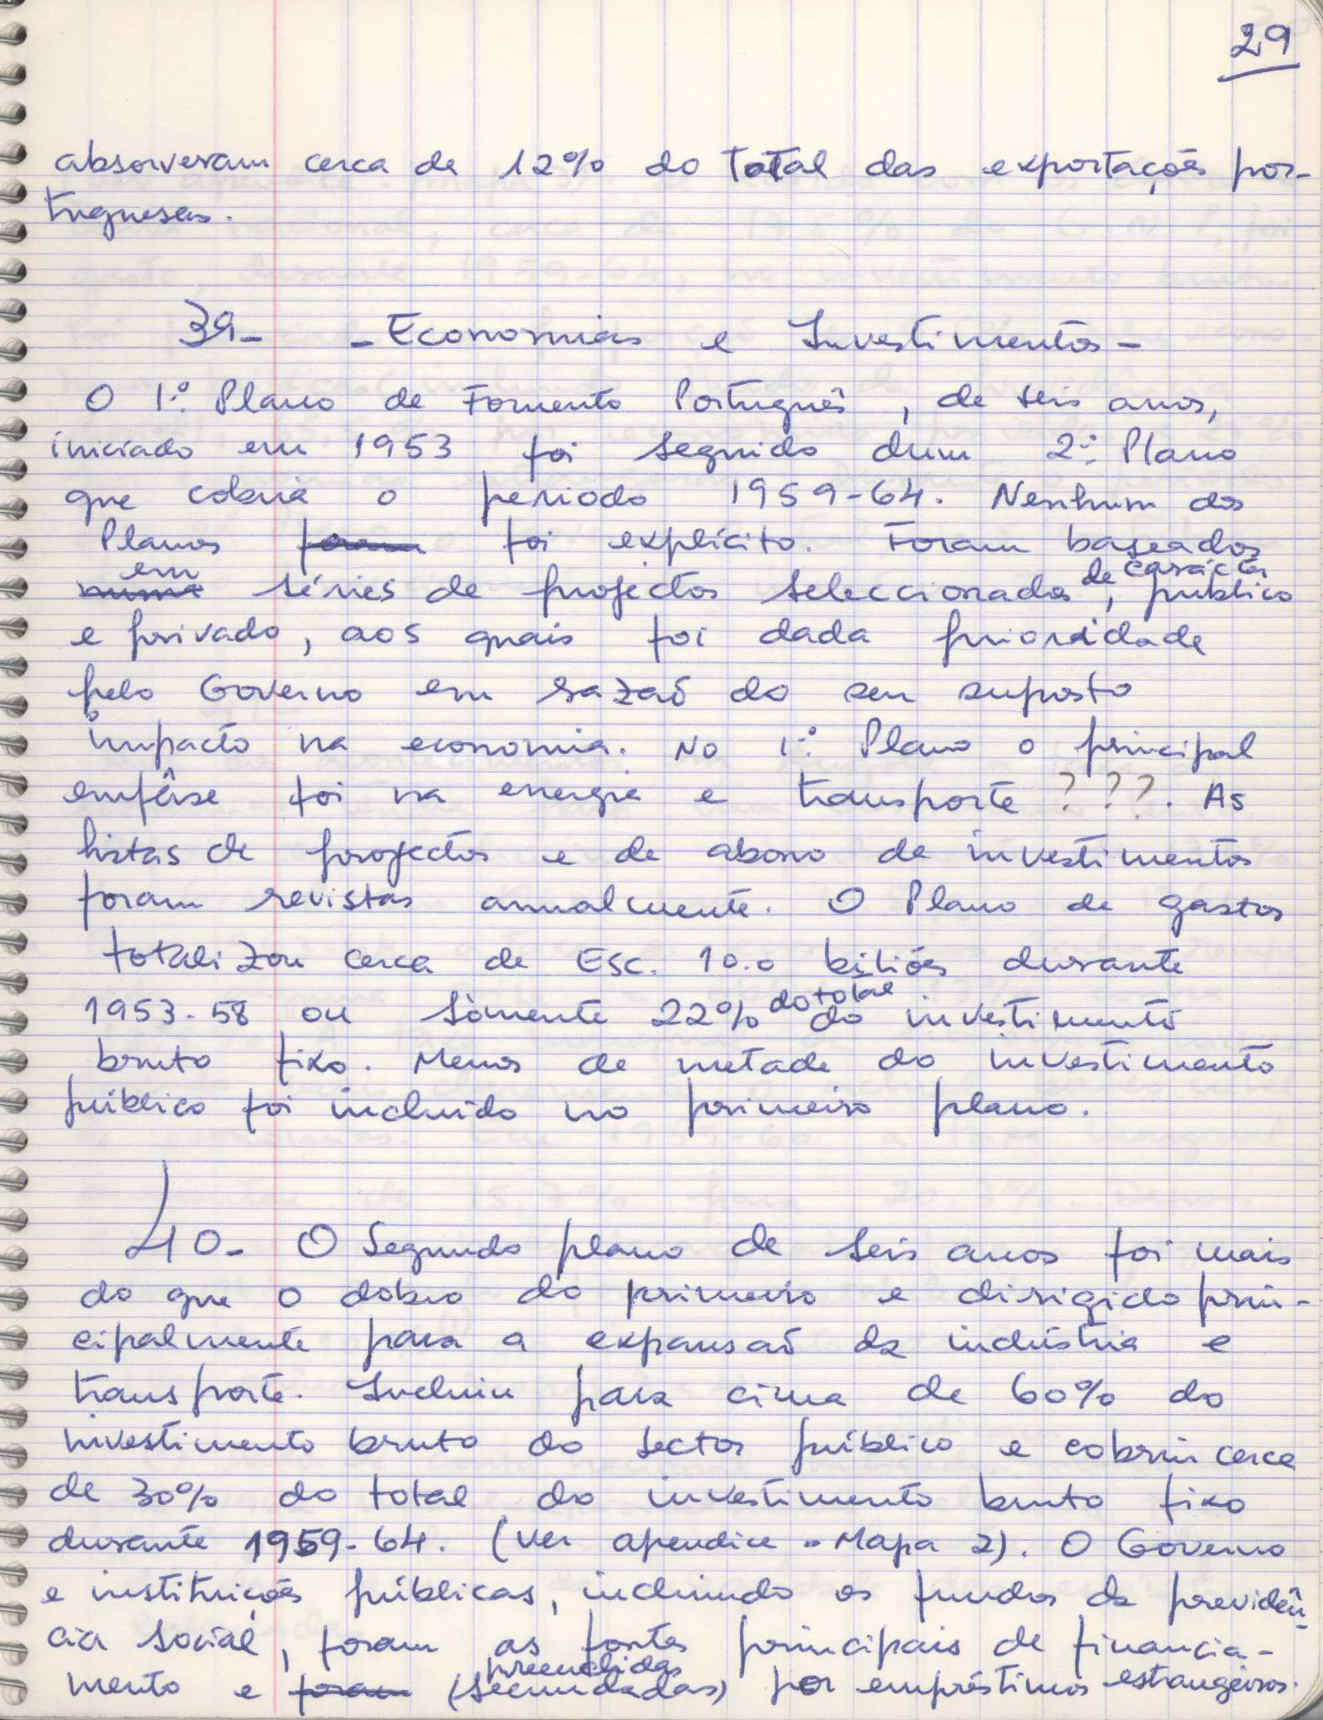 29
absorveram cerca de 12% do total das exportações por-
tuguesas.
39- - Economias e Investimentos -
O 1º. Plano de Fomento Português, de seis anos,
iniciado em 1953 foi seguido dum 2º. Plano
que cobria o periodo 1959-64. Nenhum dos
Planos foram foi explícito. Foram baseados
em de carácter
numa séries de projectos seleccionados, público
e privado, aos quais foi dada prioridade
pelo Governo em razão do seu suposto
impacto na economia. No 1º. Plano o principal
emfâse foi na energia e transporte ???. As
listas de projectos e de abono de investimentos
foram revistas anualmente. O Plano de gastos
totalizou cerca de Esc. 10.0 biliões durante
do total
1953-58 ou sòmente 22% do investimento
bruto fixo. Menos de metade do investimento
público foi incluído no primeiro plano.
40- O Segundo plano de seis anos foi mais
do que o dobro do primeiro e dirigido prin-
cipalmente para a expansão da indústria e
transporte. Incluiu para cima de 60% do
investimento bruto do sector público e cobriu cerca
de 30% do total do investimento bruto fixo
durante 1959-64. (Ver apendice - Mapa 2). O Governo
e instituições públicas, incluindo os fundos da previdên-
cia social, foram as fontes principais de financia-
preenchidas
mento e foram (secundadas) por empréstimos estrangeiros.